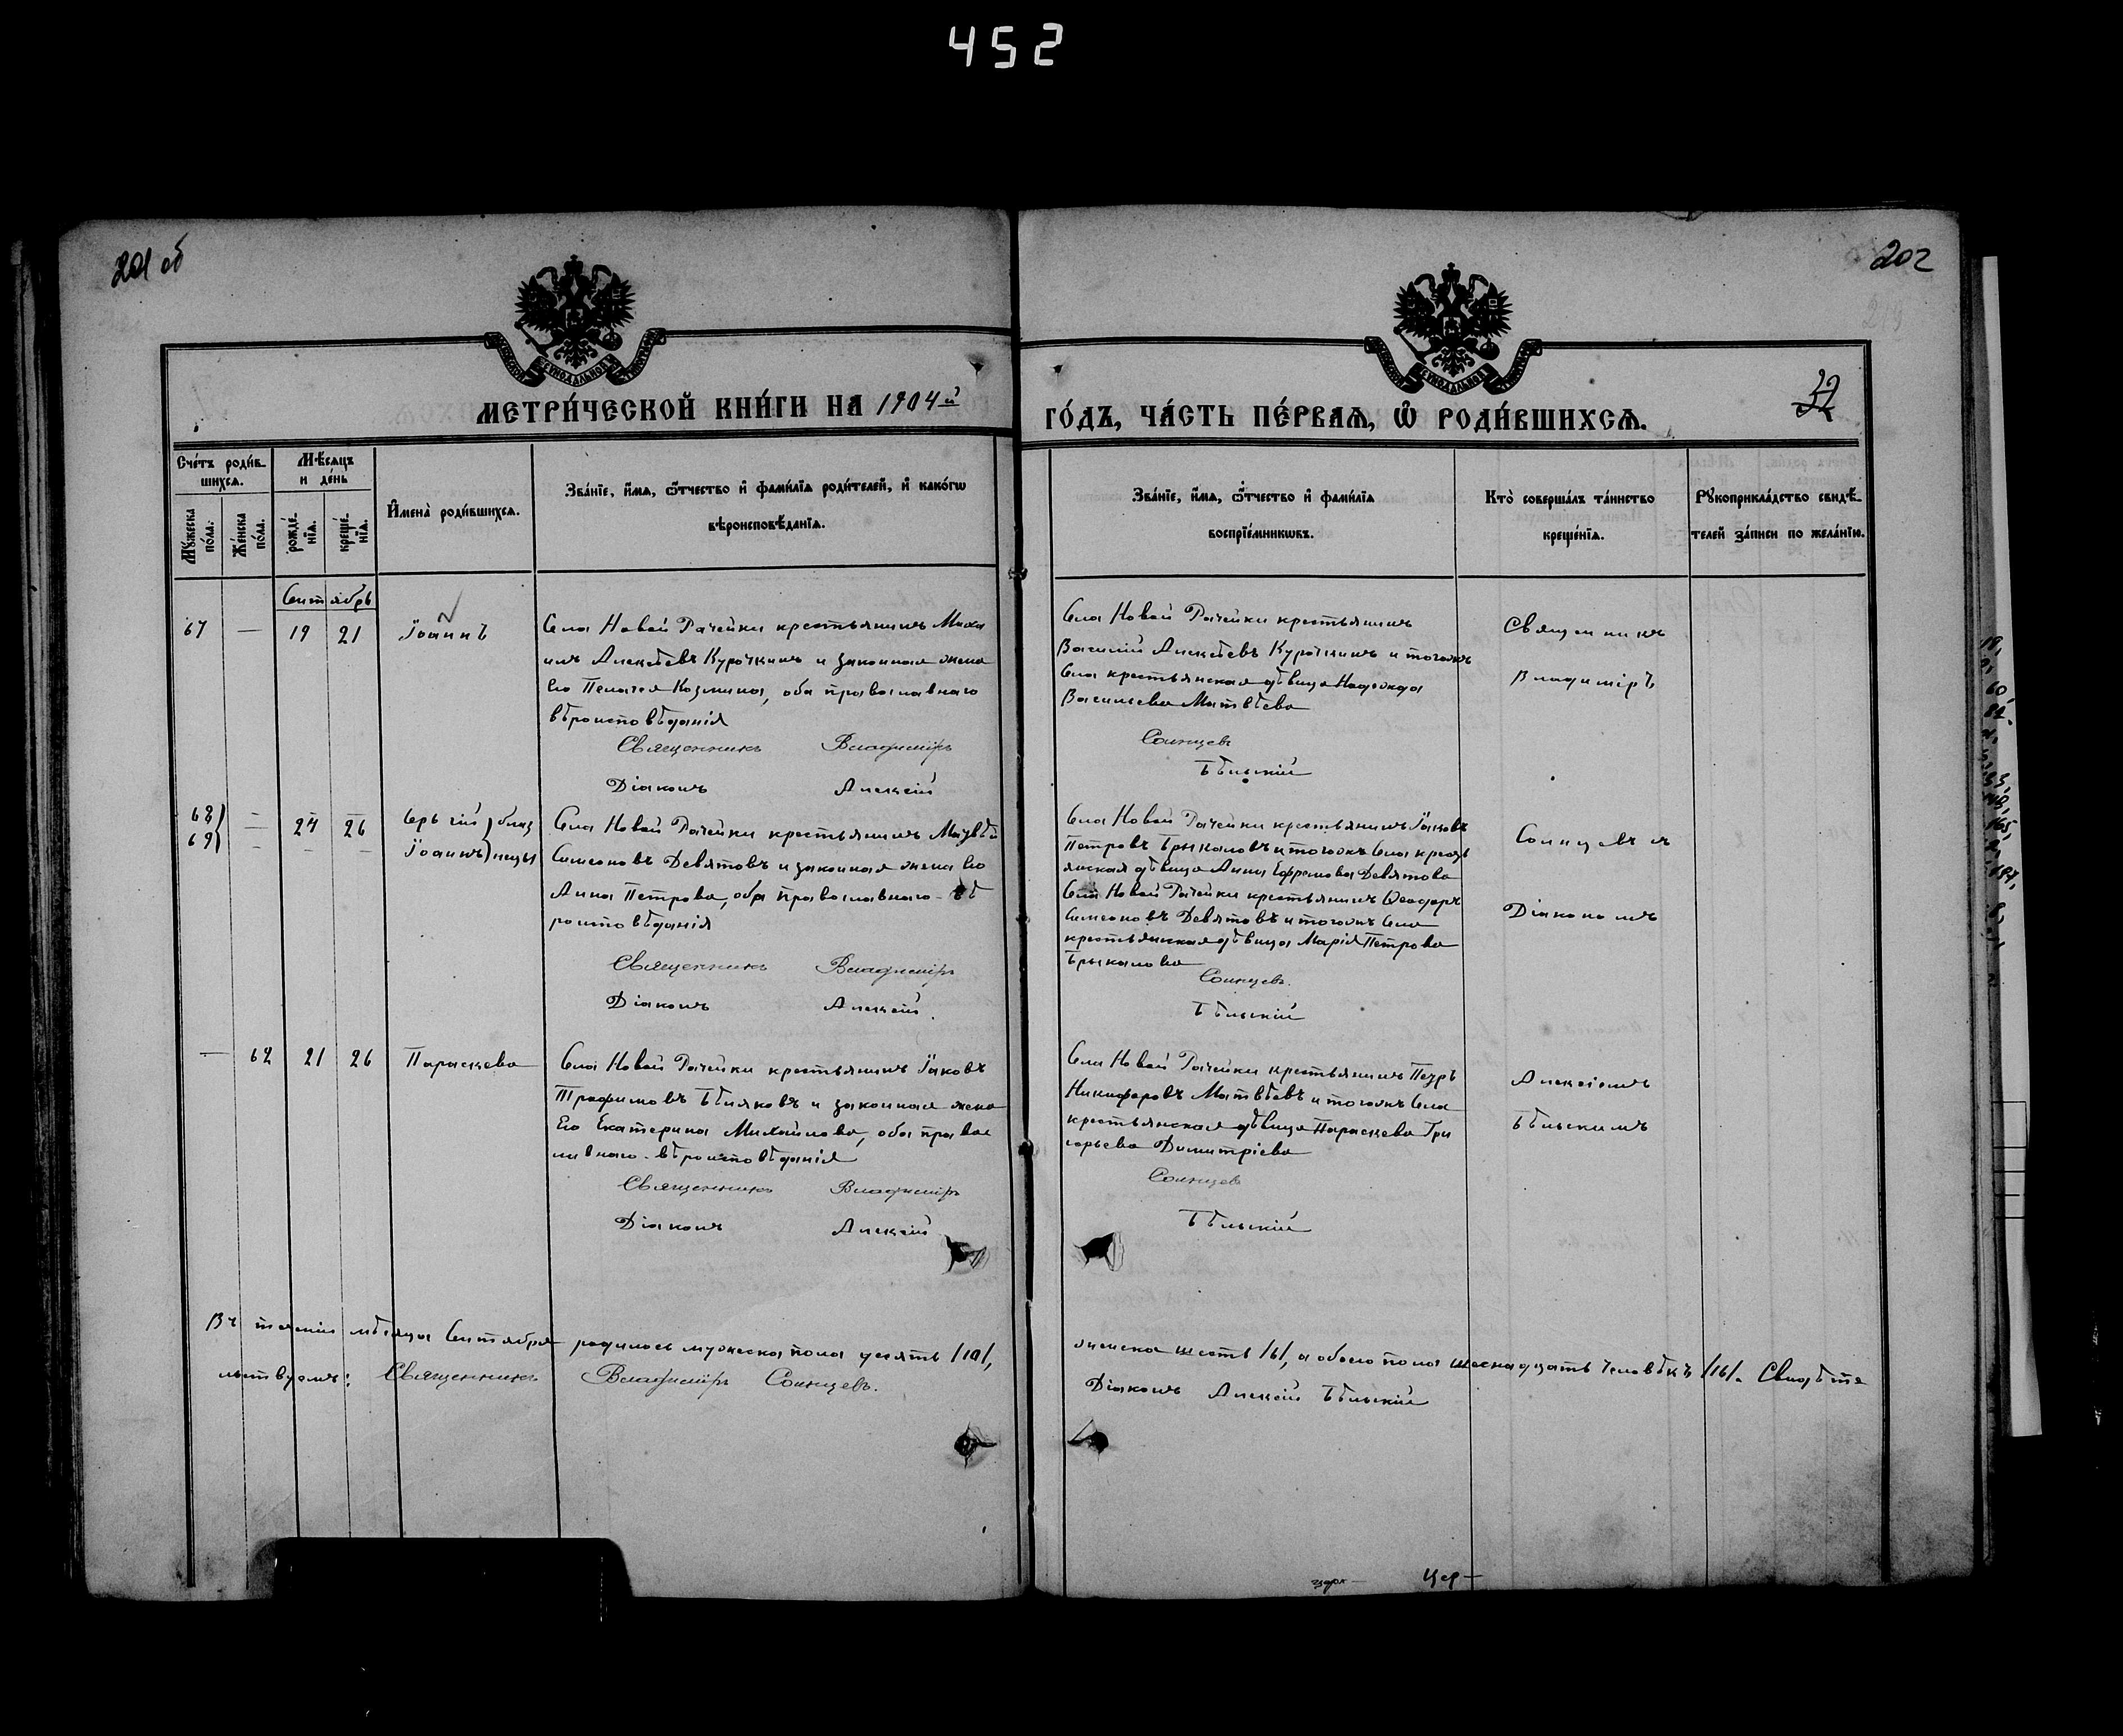 452
201 об
202
МЕТРИ́ЧЕСКОЙ КНИ́ГИ НА 1904й
ГО́ДЪ, ЧА́СТЬ ПЕ́РВАѦ, Ѡ҆ РОДИ́ВШИХСѦ.
Сче́тъ роди́в-
шихсѧ.
Мꙋ́жеска по́ла.
Же́нска по́ла.
Мѣ́сѧцъ
и де́нь
рожде́-нїѧ.
креще́-нїѧ.
И҆мена̀ роди́вшихсѧ.
Зва́нїе, и҆́мѧ, ѻ҆́тчество и҆ фами́лїѧ роди́телей, и҆ како́гѡ
вѣроисповѣ́данїѧ.
Зва́нїе, и҆́мѧ, ѻ҆́тчество и҆ фами́лїѧ
воспрїе́мникѡвъ.
Кто̀ соверша́лъ та́инство
креще́нїѧ.
Рꙋкоприкла́дство свидѣ́-
телей за́писи по жела́нїю.
Сентябрь
67 — 19 21 Іоаннъ
Села Новой Рачейки крестьянинъ Миха
илъ Алексѣевъ Курочкинъ и законная жена
Его Пелагея Козмина, оба православнаго
вѣроисповѣданія
Священникъ Владиміръ
Діаконъ Алексій
Села Новой Рачейки крестьянинъ
Василій Алексѣевъ Курочкинъ и тогожъ
Села крестьянская дѣвица Надежда
Васильева Матвѣева
Солнцевъ
Бѣльскій
Священникъ
Владиміръ
68) — 24 26 Сергій) близ
69) — — — Іоаннъ) нецы
Села Новой Рачейки крестьянинъ Матвѣй
Симеоновъ Девятовъ и законная жена Его
Анна Петрова, оба православнаго вѣ
роисповѣданія
Священникъ Владиміръ
Діаконъ Алексій
Села Новой Рачейки крестьянинъ Іаковъ
Петровъ Брыкаловъ и тогожъ Села кресть
янская дѣвица Анна Ефремова Девятова
Села Новой Рачейки крестьянинъ Ѳеодоръ
Симеоновъ Девятовъ и тогожъ Села
крестьянская дѣвица Марія Петрова
Брыкалова
Солнцевъ.
Бѣльскій
Солнцевъ съ
Діакономъ
— 62 21 26 Параскева
Села Новой Рачейки крестьянинъ Іаковъ
Трофимовъ Бѣляковъ и законная жена
Его Екатерина Михайлова, оба правос
лавнаго вѣроисповѣданія
Священникъ Владиміръ
Діаконъ Алексій
Села Новой Рачейки крестьянинъ Петръ
Никифоровъ Матвѣевъ и тогожъ Села
крестьянская дѣвица Параскева Гри
горьева Димитріева
Солнцевъ
Бѣльскій
Алексіемъ
Бѣльскимъ
Въ теченіи мѣсяца Сентября родилось мужеска пола десять /10/,
женска шесть /6/, а обоего пола шеснадцать человѣкъ /16/. Свидѣте
льствуемъ: Священникъ Владиміръ Солнцевъ.
Діаконъ Алексій Бѣльскій